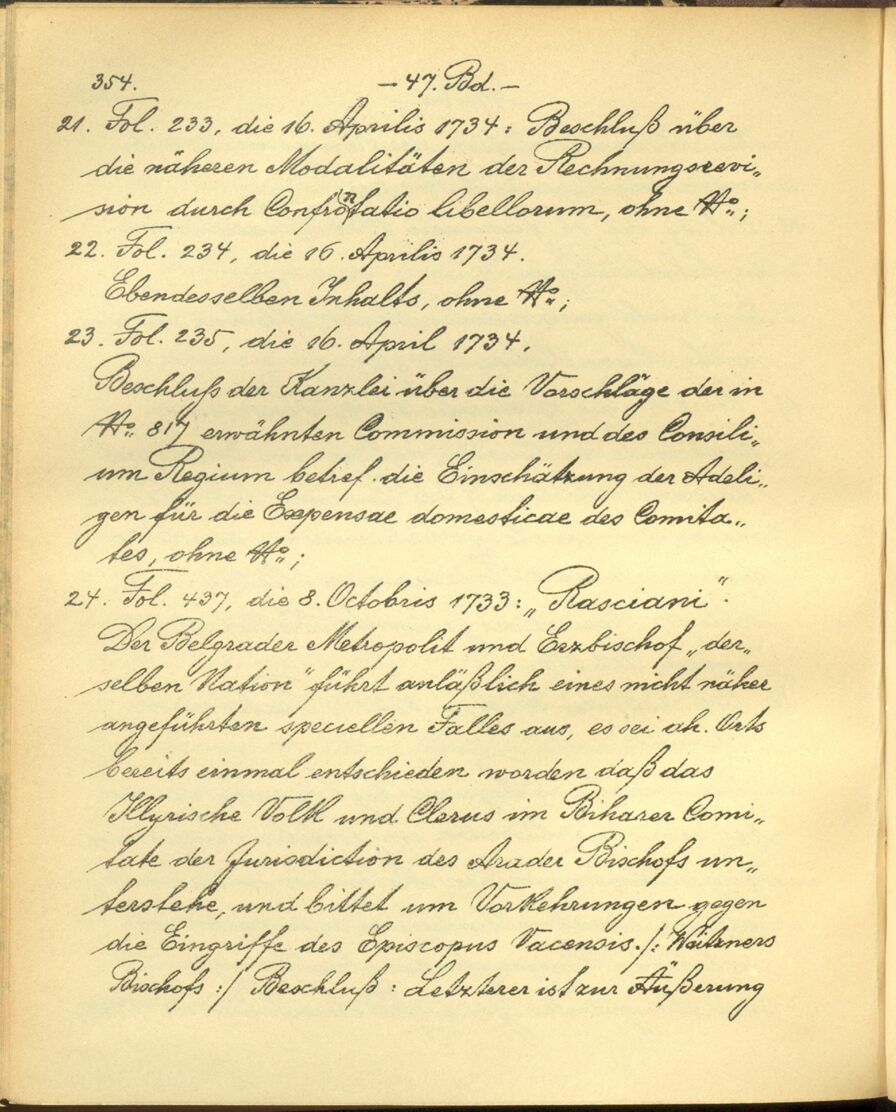 354. — 47. Bd. —
21. Fol. 233, die 16. Aprilis 1734: Beschluß über
die näheren Modalitäten der Rechnungsrevi„
sion durch Confrontatio libellorum, ohne No.;
22. Fol. 234, die 16. Aprilis 1734.
Ebendesselben Inhalts, ohne No.;
23. Fol. 235, die 16. April 1734.
Beschluß der Kanzlei über die Vorschläge der in
No. 817 erwähnten Commission und des Consili„
um Regium betref. die Einschätzung der Adeli„
gen für die Expensae domesticae des Comita„
tes, ohne No.;
24. Fol. 437, die 8. Octobris 1733: „Rasciani".
Der Belgrader Metropolit und Erzbischof „der„
selben Nation" führt anläßlich eines nicht näher
angeführten speciellen Falles aus, es sei ah. Orts
bereits einmal entschieden worden daß das
Illyrische Volk und Clerus im Biharer Comi„
tate der Jurisdiction des Arader Bischofs un„
terstehe, und bittet um Vorkehrungen gegen
die Eingriffe des Episcopus Vacensis. /: Waitzners
Bischofs :/ Beschluß: Letzterer ist zur Äußerung